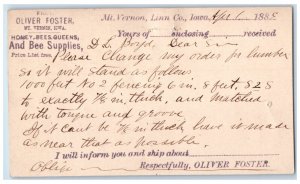 From
OLIVER FOSTER,
MT. VERNON, IOWA.
HONEY, BEES, QUEENS,
And Bee Supplies,
Price List free.
Mt. Vernon, Linn Co., Iowa, Apr 1 1885
Yours of enclosing received
D L Boyd, Dear Sir
Please change my order for lumber
so it will stand as follows
1000 feet No 2 fencing 6 in. 8 feet, S2S
to exactly 7/8 in thick, and matched
with tongue and groove
If it cant be 7/8 in thick have it made
as near that as possible.
I will inform you and ship about
Oblige Respectfully, OLIVER FOSTER.